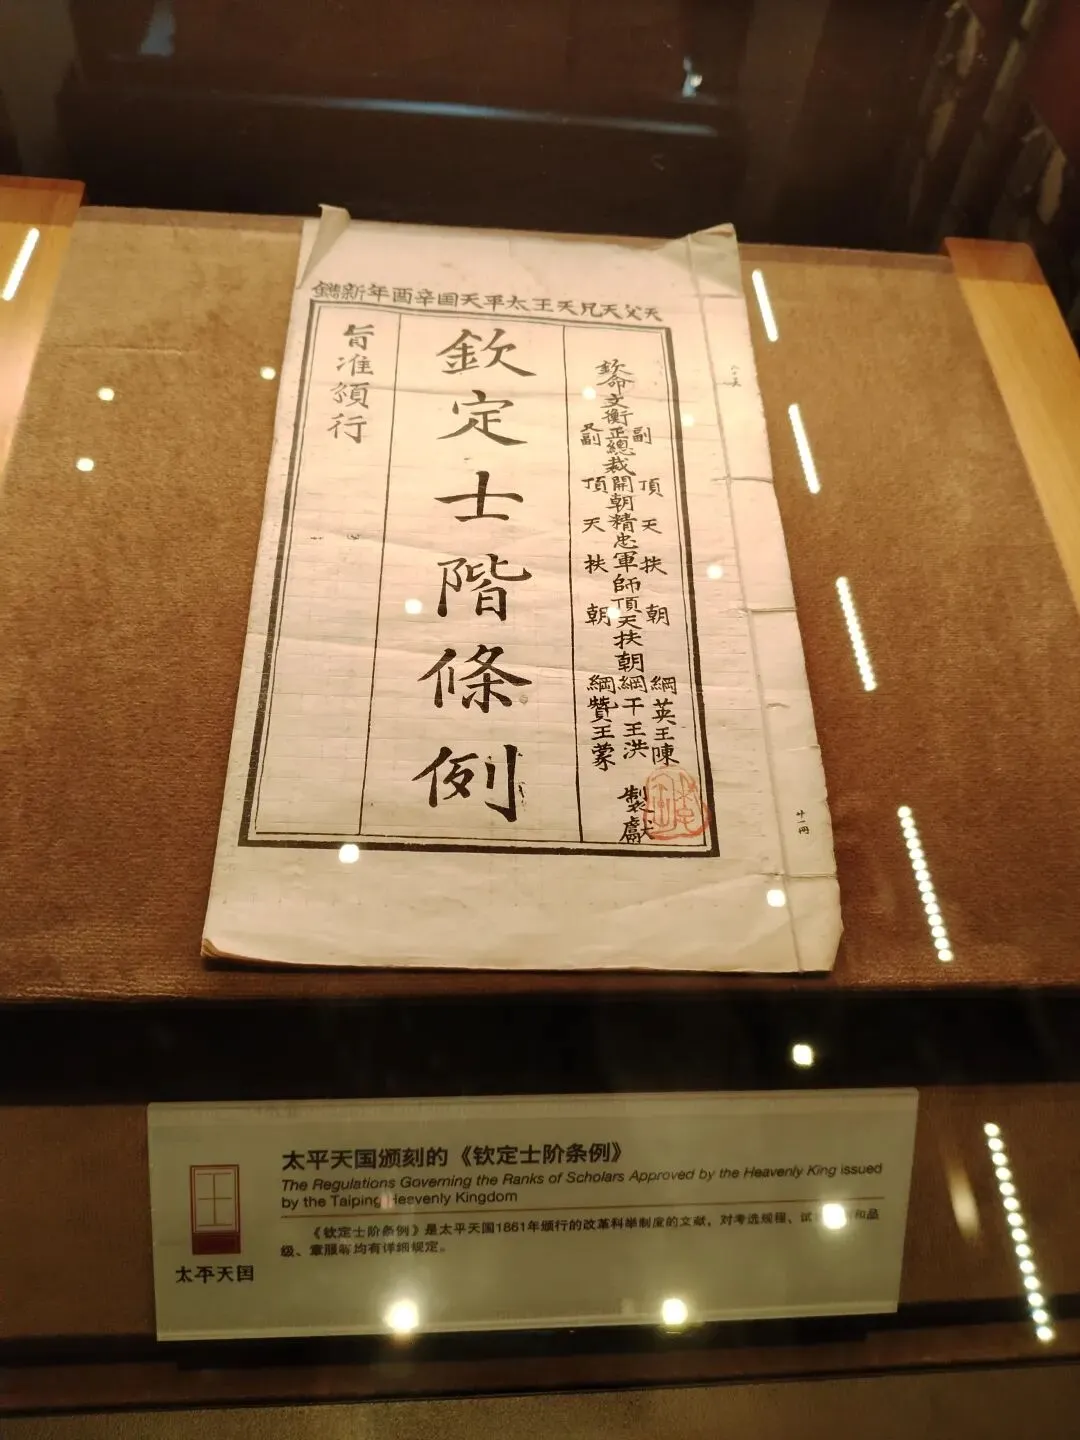 天父天兄天王太平天囯辛酉年新鐫
欽命文衡正總裁開朝精忠軍師頂天扶朝綱干王洪
副頂天扶朝綱英王陳
又副頂天扶朝綱贊王蒙
製獻
欽定士階條例
旨准頒行
太平天国颁刻的《钦定士阶条例》
The Regulations Governing the Ranks of Scholars Approved by the Heavenly King issued
by the Taiping Heavenly Kingdom
《钦定士阶条例》是太平天国1861年颁行的改革科举制度的文献，对考选规程、试 和品
级、章服等均有详细规定。
太平天囯